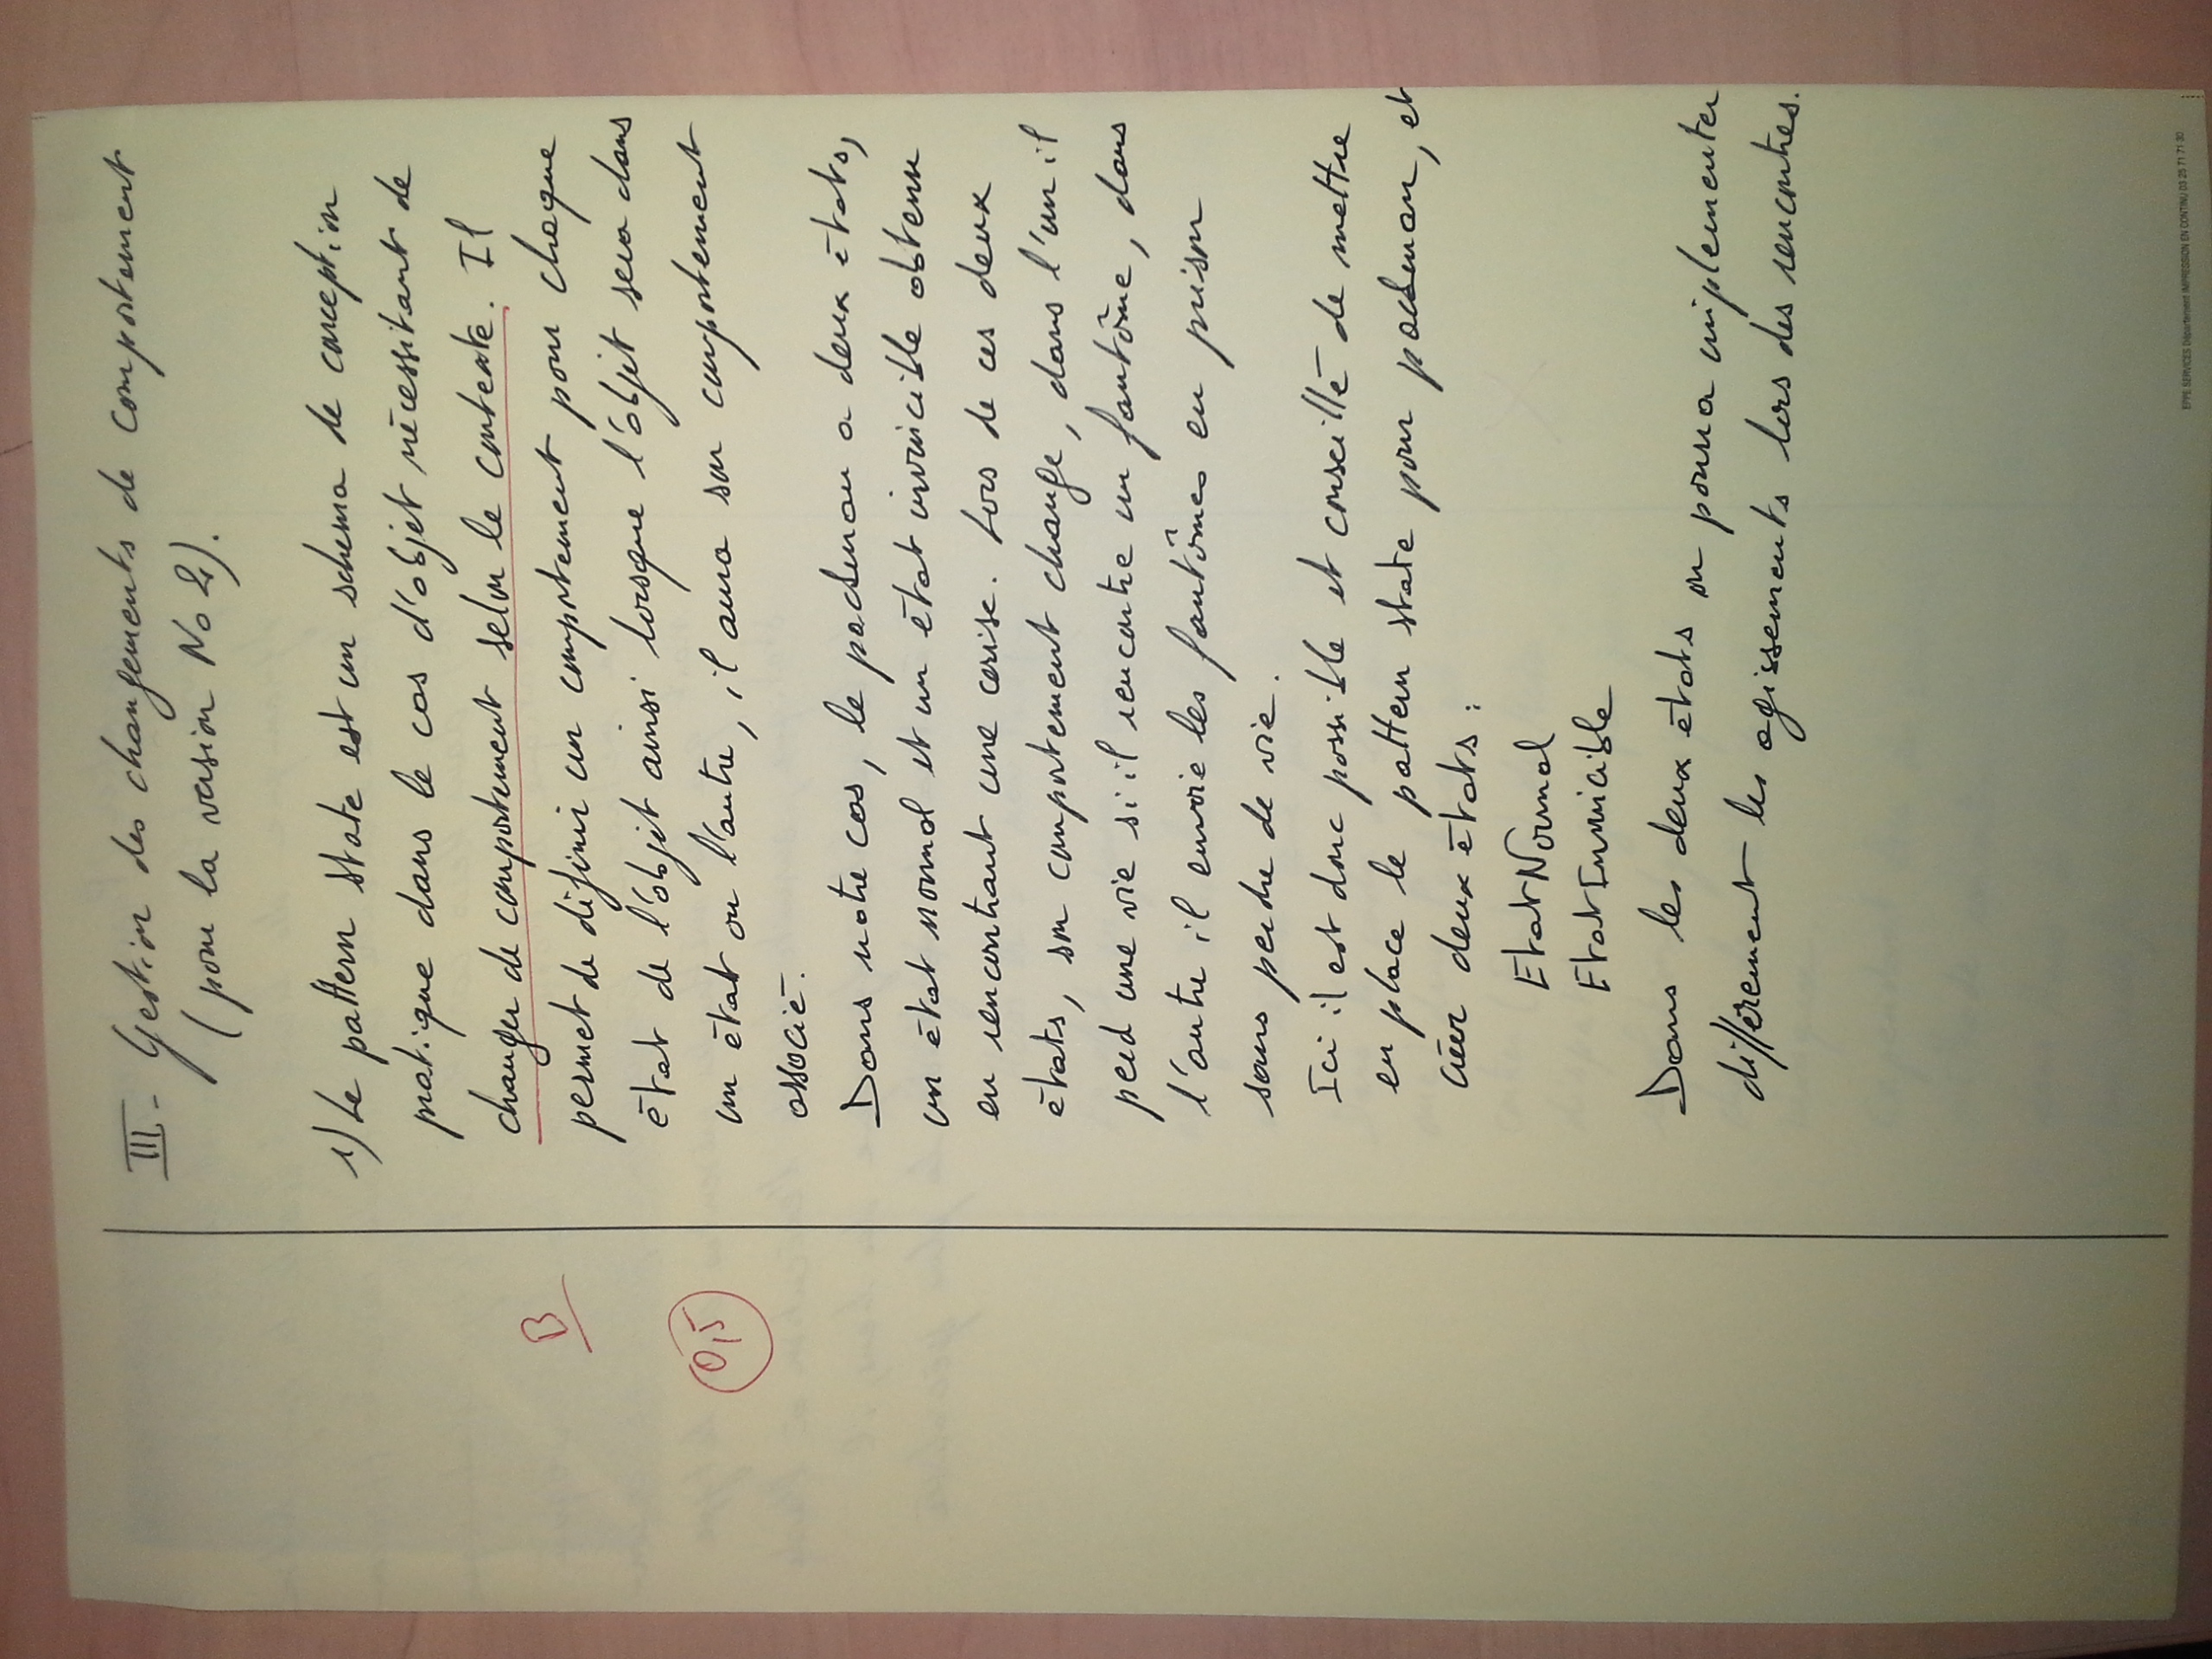 III.- Gestion des changements de comportement
(pour la version No 2).
1) Le pattern state est un schema de conception
pratique dans le cas d'objet nécessitant de
changer de comportement selon le contexte. Il
permet de définir un comportement pour chaque
état de l'objet ainsi lorsque l'objet sera dans
un état ou l'autre, il aura son comportement
associé.
Dans notre cas, le pacman a deux états,
un état normal et un état invincible obtenu
en rencontrant une cerise. Lors de ces deux
états, son comportement change, dans l'un il
perd une vie si il rencontre un fantôme, dans
l'autre il envoie les fantômes en prison
sans perdre de vie.
Ici il est donc possible et conseillé de mettre
en place le pattern state pour packman, et
créer deux états :
EtatNormal
EtatInvincible
Dans les deux états on pourra implementer
différement les agissements lors des rencontres.
B
0,5
EPPE SERVICES Département IMPRESSION EN CONTINU 03 25 71 71 30